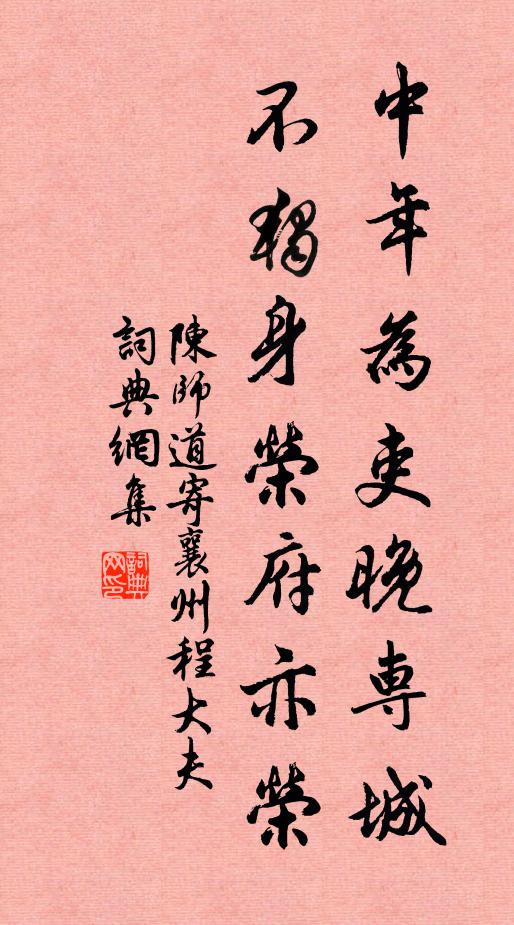 中年為吏晚専城
不獨身榮府亦榮
陳師道寄襄州程大夫
詞典網集
詞典网印